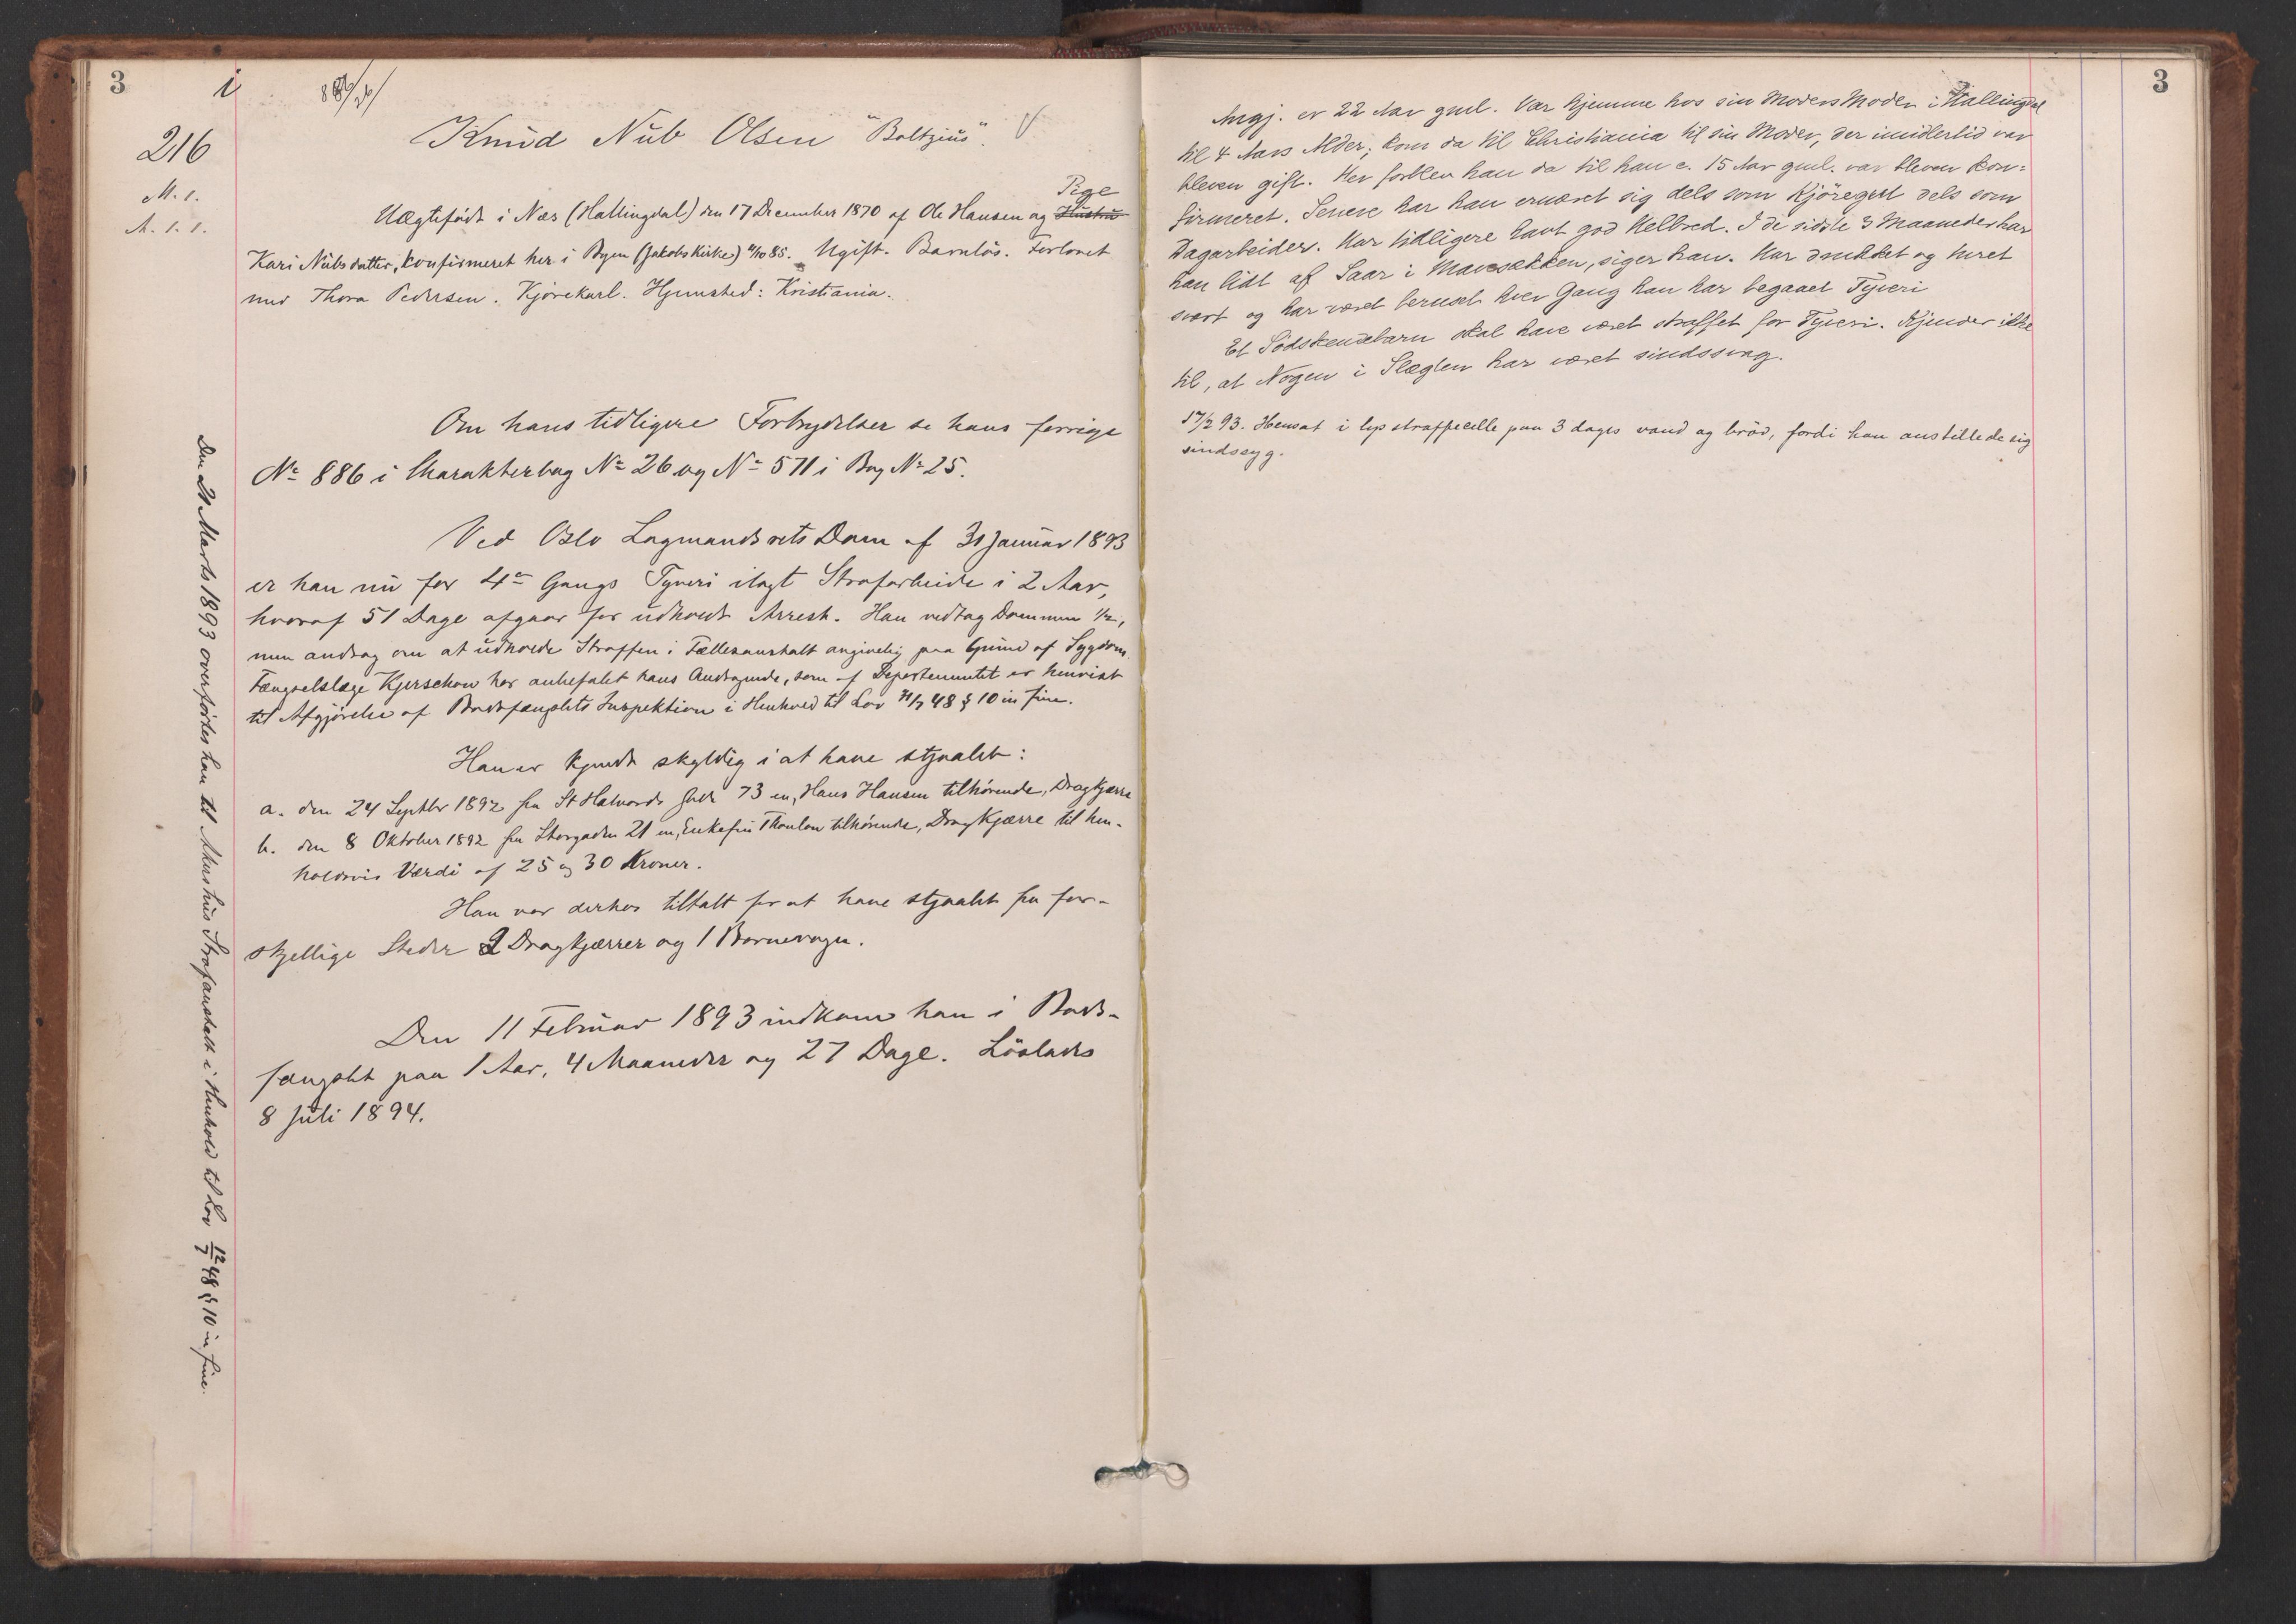 3
i
886/26/
216
M. 1.
A. 1. 1.
Knud Nub Olsen "Boltzius". V
Pige
Uægtefødt i Næs (Hallingdal) den 17 December 1870 af Ole Hansen og Hustru
Kari Nubsdatter, konfirmeret her i Byen (Jakobs Kirke) 4/10 85. Ugift. Barnløs. Forlovet
med Thora Pedersen. Kjørekarl. Hjemsted: Kristiania.
Om hans tidligere Forbrydelser se hans forrige
No 886 i Charakterbog No 26 og No 571 i Bog No 25.
Ved Oslo Lagmandsrets Dom af 31 Januar 1893
er han nu for 4de Gangs Tyveri ilagt Strafarbeide i 2 Aar,
hvoraf 51 Dage afgaar for udholdt Arrest. Han vedtog Dommen 1/2,
men androg om at udholde Straffen i Fællesanstalt angivelig paa Grund af Sygdom.
Fængselslæge Kjerschow har anbefalet hans Andragende, som af Departementet er henvist
til Afgjørelse af Bodsfængslets Inspektion i Henhold til Lov 12/7 48 § 10 in fine.
Han er kjendt skyldig i at have stjaalet:
a. den 24 Septbr 1892 fra St Halvards Gade 73 en, Hans Hansen tilhørende, Dragkjærre
b. den 8 Oktober 1892 fra Storgaden 21 en, Enkefru Thaulow tilhørende, Dragkjærre til hen-
holdsvis Værdi af 25 og 30 Kroner.
Han var derhos tiltalt for at have stjaalet fra for-
skjellige Steder 2 Dragkjærrer og 1 Barnevogn.
Den 11 Februar 1893 indkom han i Bods-
fængslet paa 1 Aar, 4 Maaneder og 27 Dage. Løslades
8 Juli 1894.
Den 21 Marts 1893 overførtes han til Akershus Strafanstalt i Henhold til Lov 12/7 48 § 10 in fine.
3
Angj. er 22 Aar gml. Var hjemme hos sin Moders Moder i Hallingdal
til 4 Aars Alder; kom da til Christiania til sin Moder, der imidlertid var
bleven gift. Her forblev han da til han c. 15 Aar gml. var bleven kon=
firmeret. Senere har han ernæret sig dels som Kjøregut dels som
Dagarbeider. Har tidligere havt god Helbred. I de sidste 3 Maaneder har
han lidt af Saar i Mavesækken, siger han. Har drukket og turet
svært og har været beruset hver Gang han har begaaet Tyveri
Et Södskendebarn skal have været straffet for Tyveri. Kjender ikke
til, at Nogen i Slægten har været sindssvag.
17/2 93. Hensat i lys straffecelle paa 3 dages vand og bröd, fordi han anstillede sig
sindssyg.